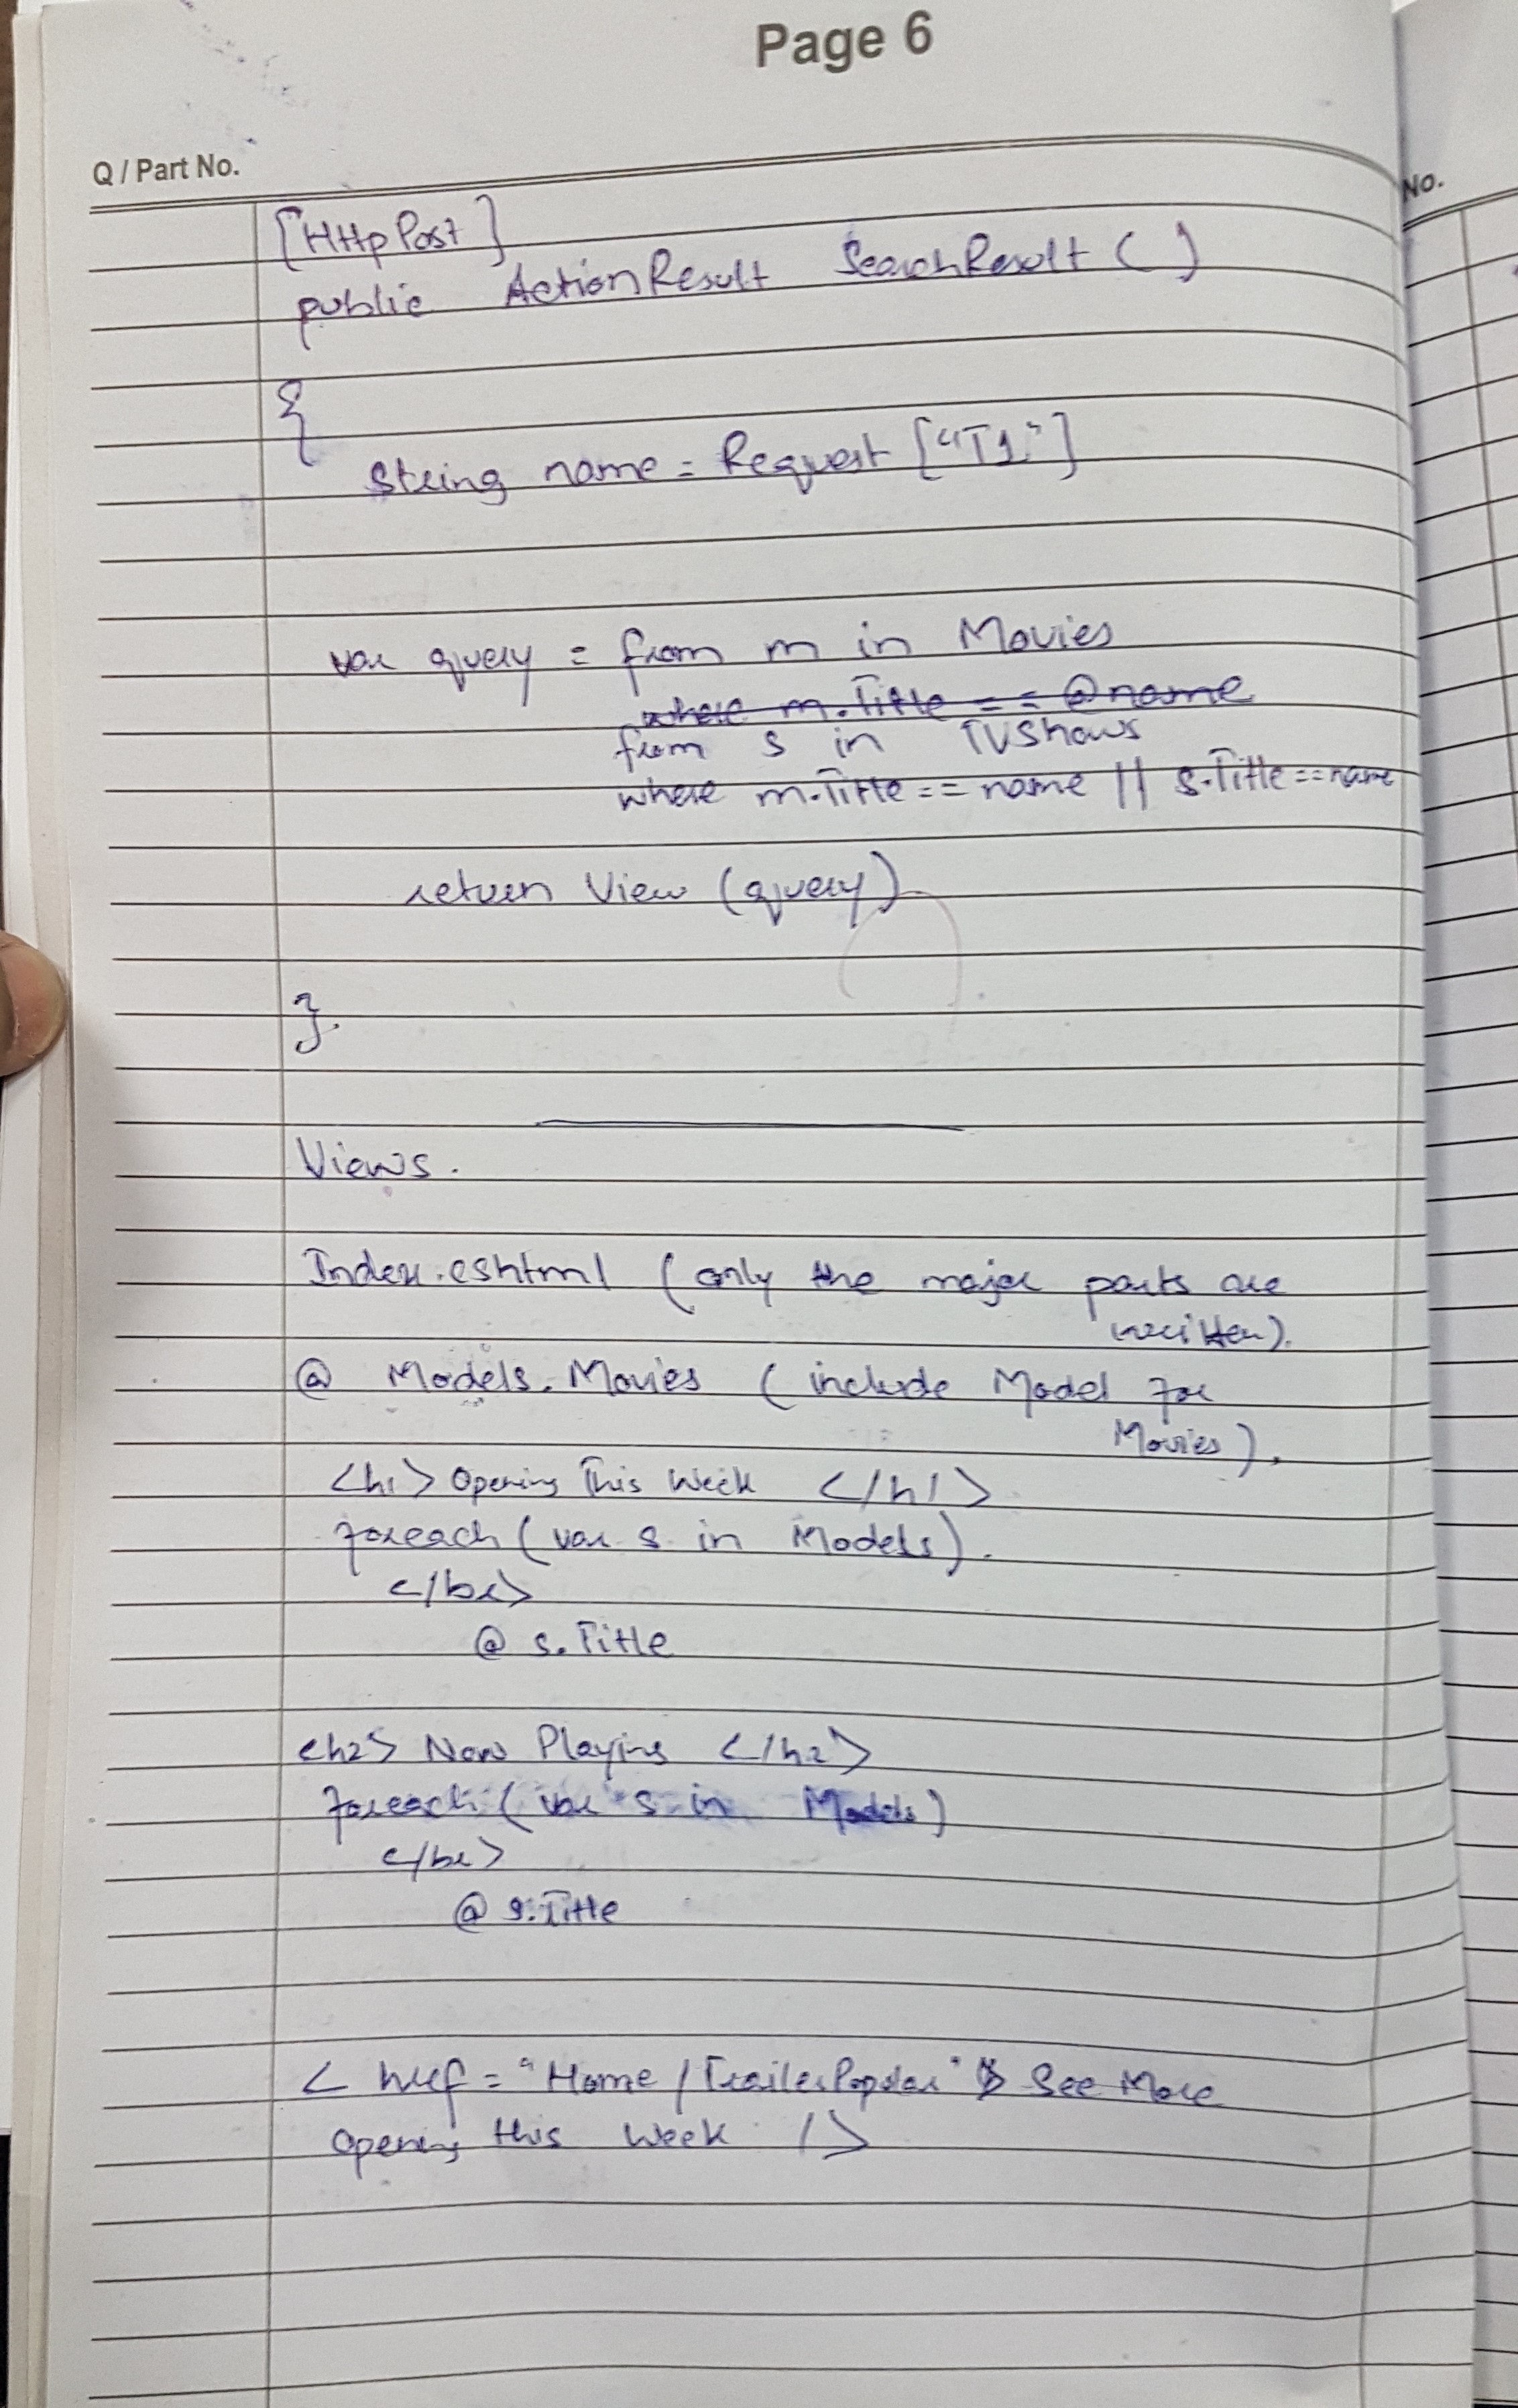 Page 6
Q / Part No.
No.
[HttpPost]
public ActionResult SearchResult ( )
{
String name = Request ["T1"]
var query = from m in Movies
where m.Title == @name
from s in TVShows
where m.Title == name || s.Title == name
return View (query)
}.
Views.
Index.cshtml ( only the major parts are
written).
@ Models.Movies ( include Model for
Movies ).
<h1> Opening This Week </h1>
foreach ( var s in Models ).
</br>
@ s.Title
<h2> Now Playing </h2>
foreach ( var s in Models )
</br>
@ s.Title
< href = "Home / TrailerPopular" > See More
Opening this Week />